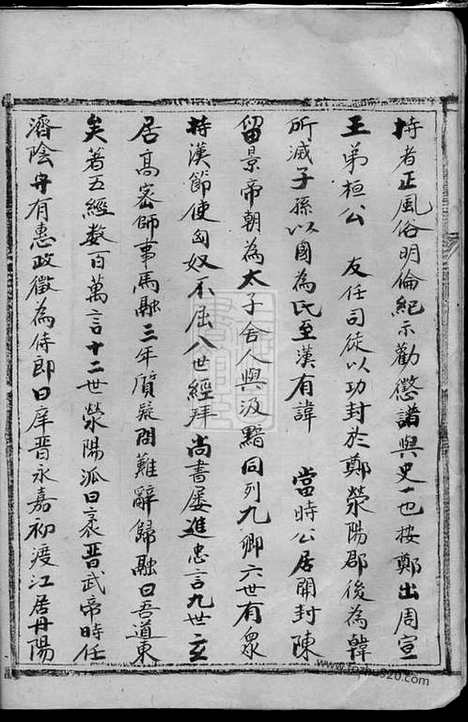 持者正風俗明倫紀示勸懲譜與史一也按鄭出周宣
王弟桓公 友任司徒以功封於鄭滎陽郡後為韓
所滅子孫以國為氏至漢有諱 當時公居開封陳
留景帝朝為太子舍人與汲黯同列九卿六世有衆
持漢節使匈奴不屈八世經拜尚書屢進忠言九世玄
居高密師事馬融三年質疑問難辭歸融曰吾道東
矣著五經数百萬言十二世滎陽派曰袤晋武帝時任
濟陰守有惠政徵為侍郎曰庠晋永嘉初渡江居丹陽